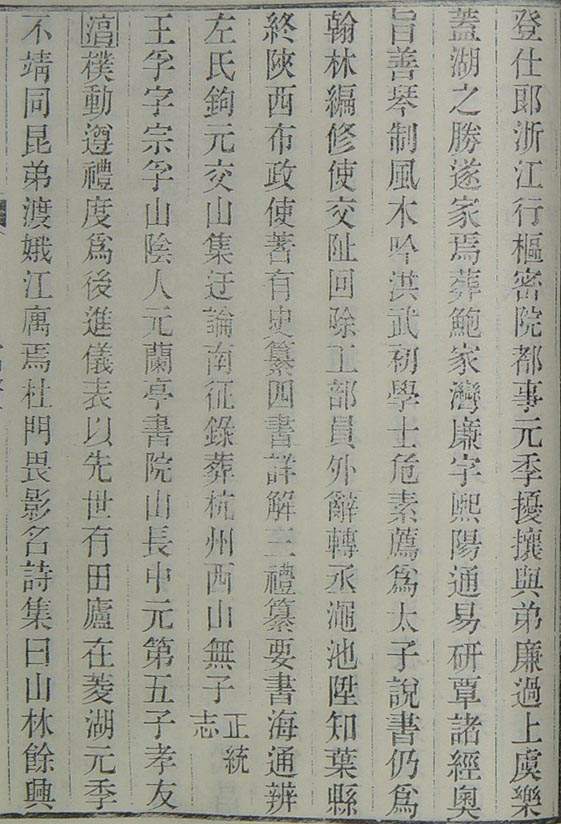 登仕郎浙江行樞密院都事元季擾攘與弟廉過上虞樂
蓋湖之勝遂家焉葬鮑家灣廉字熙陽通易研覃諸經奧
旨善琴制風木吟洪武初學士危素薦爲太子說書仍爲
翰林編修使交阯回除工部員外辭轉丞澠池陞知葉縣
終陝西布政使著有史纂四書詳解三禮纂要書海通辨
左氏鉤元交山集迂論南征錄葬杭州西山無子正統志
王孚字宗孚山陰人元蘭亭書院山長中元第五子孝友
湻樸動遵禮度爲後進儀表以先世有田廬在菱湖元季
不靖同昆弟渡娥江庽焉杜門畏影名詩集曰山林餘興